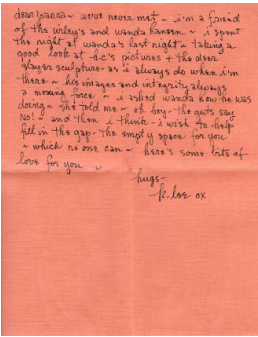 dear joanna ~ we've never met ~ i'm a friend
of the wiley's and wanda hansen ~ i spent
the night at wanda's last night ~ taking a
good look at hc's pictures & the deer
slayer sculpture - as i always do when i'm
there ~ his images and integrity always
a moving force ~ i asked wanda how he was
doing ~ she told me ~ oh boy - the guts say
no! ~ and then i think ~ i wish to help
fill in the gap - the empty space for you
~ which no one can ~ here's some bits of
love for you ~
hugs ~
k. lee ox